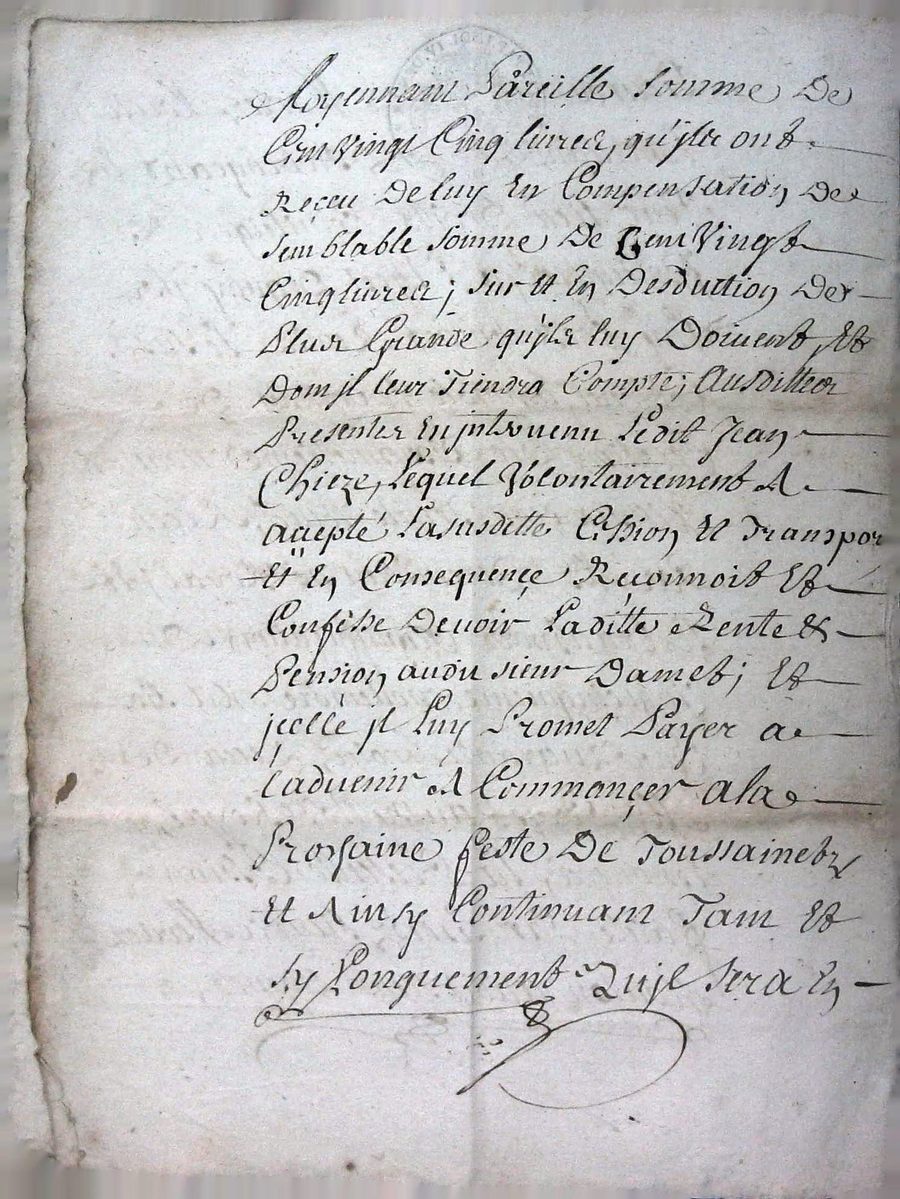 Moyennant Pareille Somme De
Cent Vingt Cinq livres, qu'jls ont
Reçeu De luy En Compensation De
semblable somme De Cent Vingt
Cinq livres; sur et En Desduction De
Plus Grande qu'jls luy Doivent, Et
Dont jl leur Tiendra Compte; Ausdittes
Presentes Est jntervenu Ledit Jean
Chieze, Lequel Volontairement A
accepté Lasusditte Cession Et Transpor
Et En Consequençe Reconnoit Et
Confesse Devoir Laditte Rente &
Pension audit sieur Damet; Et
jçelle jl Luy Promet Payer a
Ladvenir A Commançer ala
Prochaine feste De Toussainets
Et Ainsy Continuant Tant Et
sy Longuement Qujl sera En